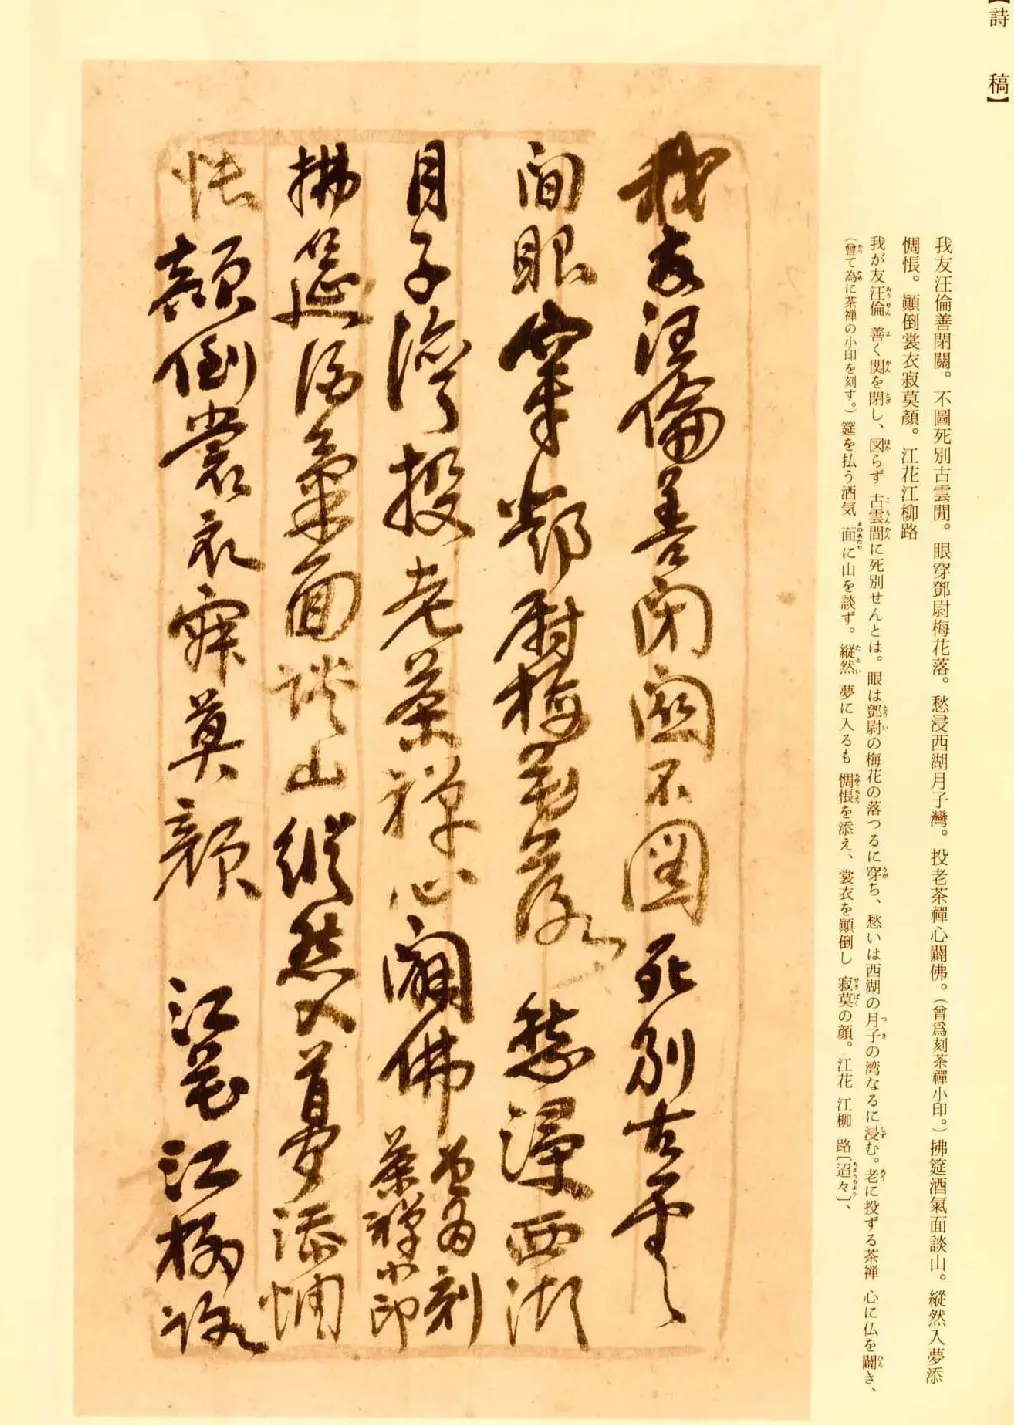 【詩　稿】
我友汪倫善閉關。不圖死別古雲閒。眼穿鄧尉梅花落。愁浸西湖月子灣。投老茶禪心闢佛。（曾爲刻茶禪小印。）拂筵酒氣面談山。縱然入夢添
惆悵。顚倒裳衣寂莫顏。江花江柳路
我が友汪倫 善く関を閉し、図らず 古雲間に死別せんとは。眼は鄧尉の梅花の落つるに穿ち、愁いは西湖の月子の湾なるに浸む。老に投ずる茶禅 心に仏を闢き、
（曾て為に茶禅の小印を刻す。）筵を払う酒気 面に山を談ず。縦然 夢に入るも 惆悵を添え、裳衣を顚倒し 寂莫の顔。江花 江柳 路〔迢々〕、
我友汪倫善閉關不圖死別古雲
閒眼穿鄧尉梅花落愁浸西湖
月子灣投老茶禪心闢佛曾爲刻茶禪小印
拂筵酒氣面談山縱然入夢添惆
悵顛倒裳衣寂莫顏　江花江柳路